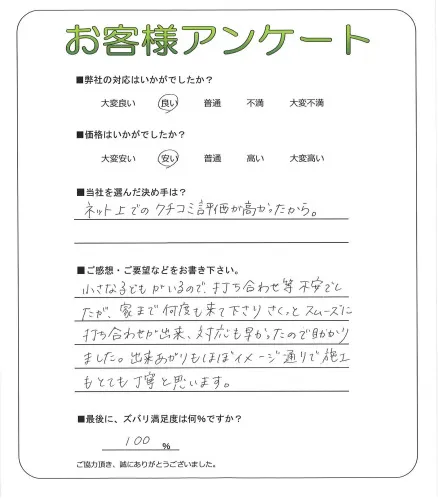 お客様アンケート
■弊社の対応はいかがでしたか？
大変良い 良い 普通 不満 大変不満
■価格はいかがでしたか？
大変安い 安い 普通 高い 大変高い
■当社を選んだ決め手は？
ネット上でのクチコミ評価が高かったから。
■ご感想・ご要望などをお書き下さい。
小さな子どもがいるので、打ち合わせ等不安でし
たが、家まで何度も来て下さり さくっとスムーズに
打ち合わせが出来、対応も早かったので助かり
ました。出来あがりもほぼイメージ通りで施工
もとても丁寧と思います。
■最後に、ズバリ満足度は何％ですか？
100 ％
ご協力頂き、誠にありがとうございました。